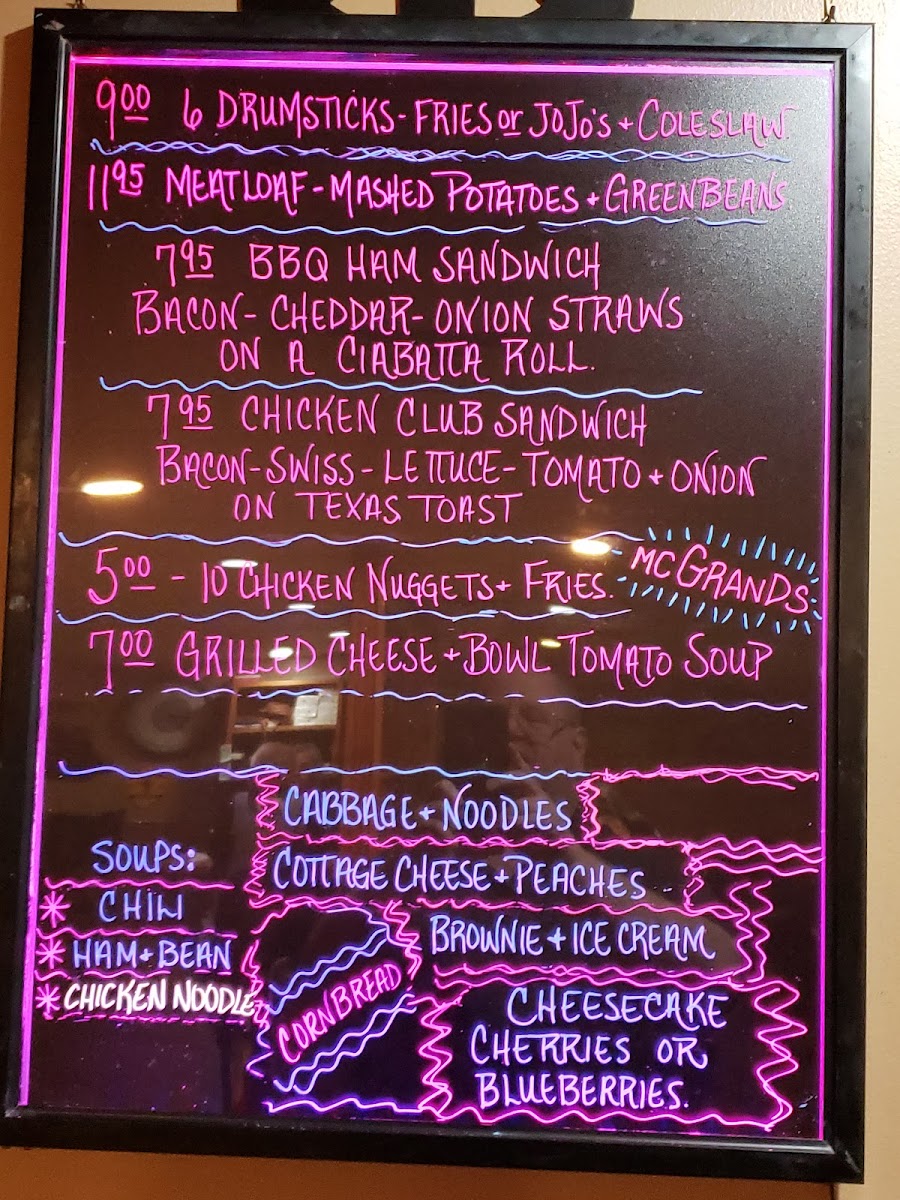 9.00 6 DRUMSTICKS - FRIES or JOJO'S + COLESLAW.
11.95 MEATLOAF - MASHED POTATOES + GREEN BEANS
7.95 BBQ HAM SANDWICH
BACON - CHEDDAR - ONION STRAWS
ON A CIABATTA ROLL.
7.95 CHICKEN CLUB SANDWICH
BACON - SWISS - LETTUCE - TOMATO + ONION
ON TEXAS TOAST
5.00 - 10 CHICKEN NUGGETS + FRIES.
McGRANDS
7.00 GRILLED CHEESE + BOWL TOMATO SOUP
CABBAGE + NOODLES
COTTAGE CHEESE + PEACHES
BROWNIE + ICE CREAM
CHEESECAKE
CHERRIES OR
BLUEBERRIES.
SOUPS:
* CHILI
* HAM + BEAN
* CHICKEN NOODLE
CORNBREAD